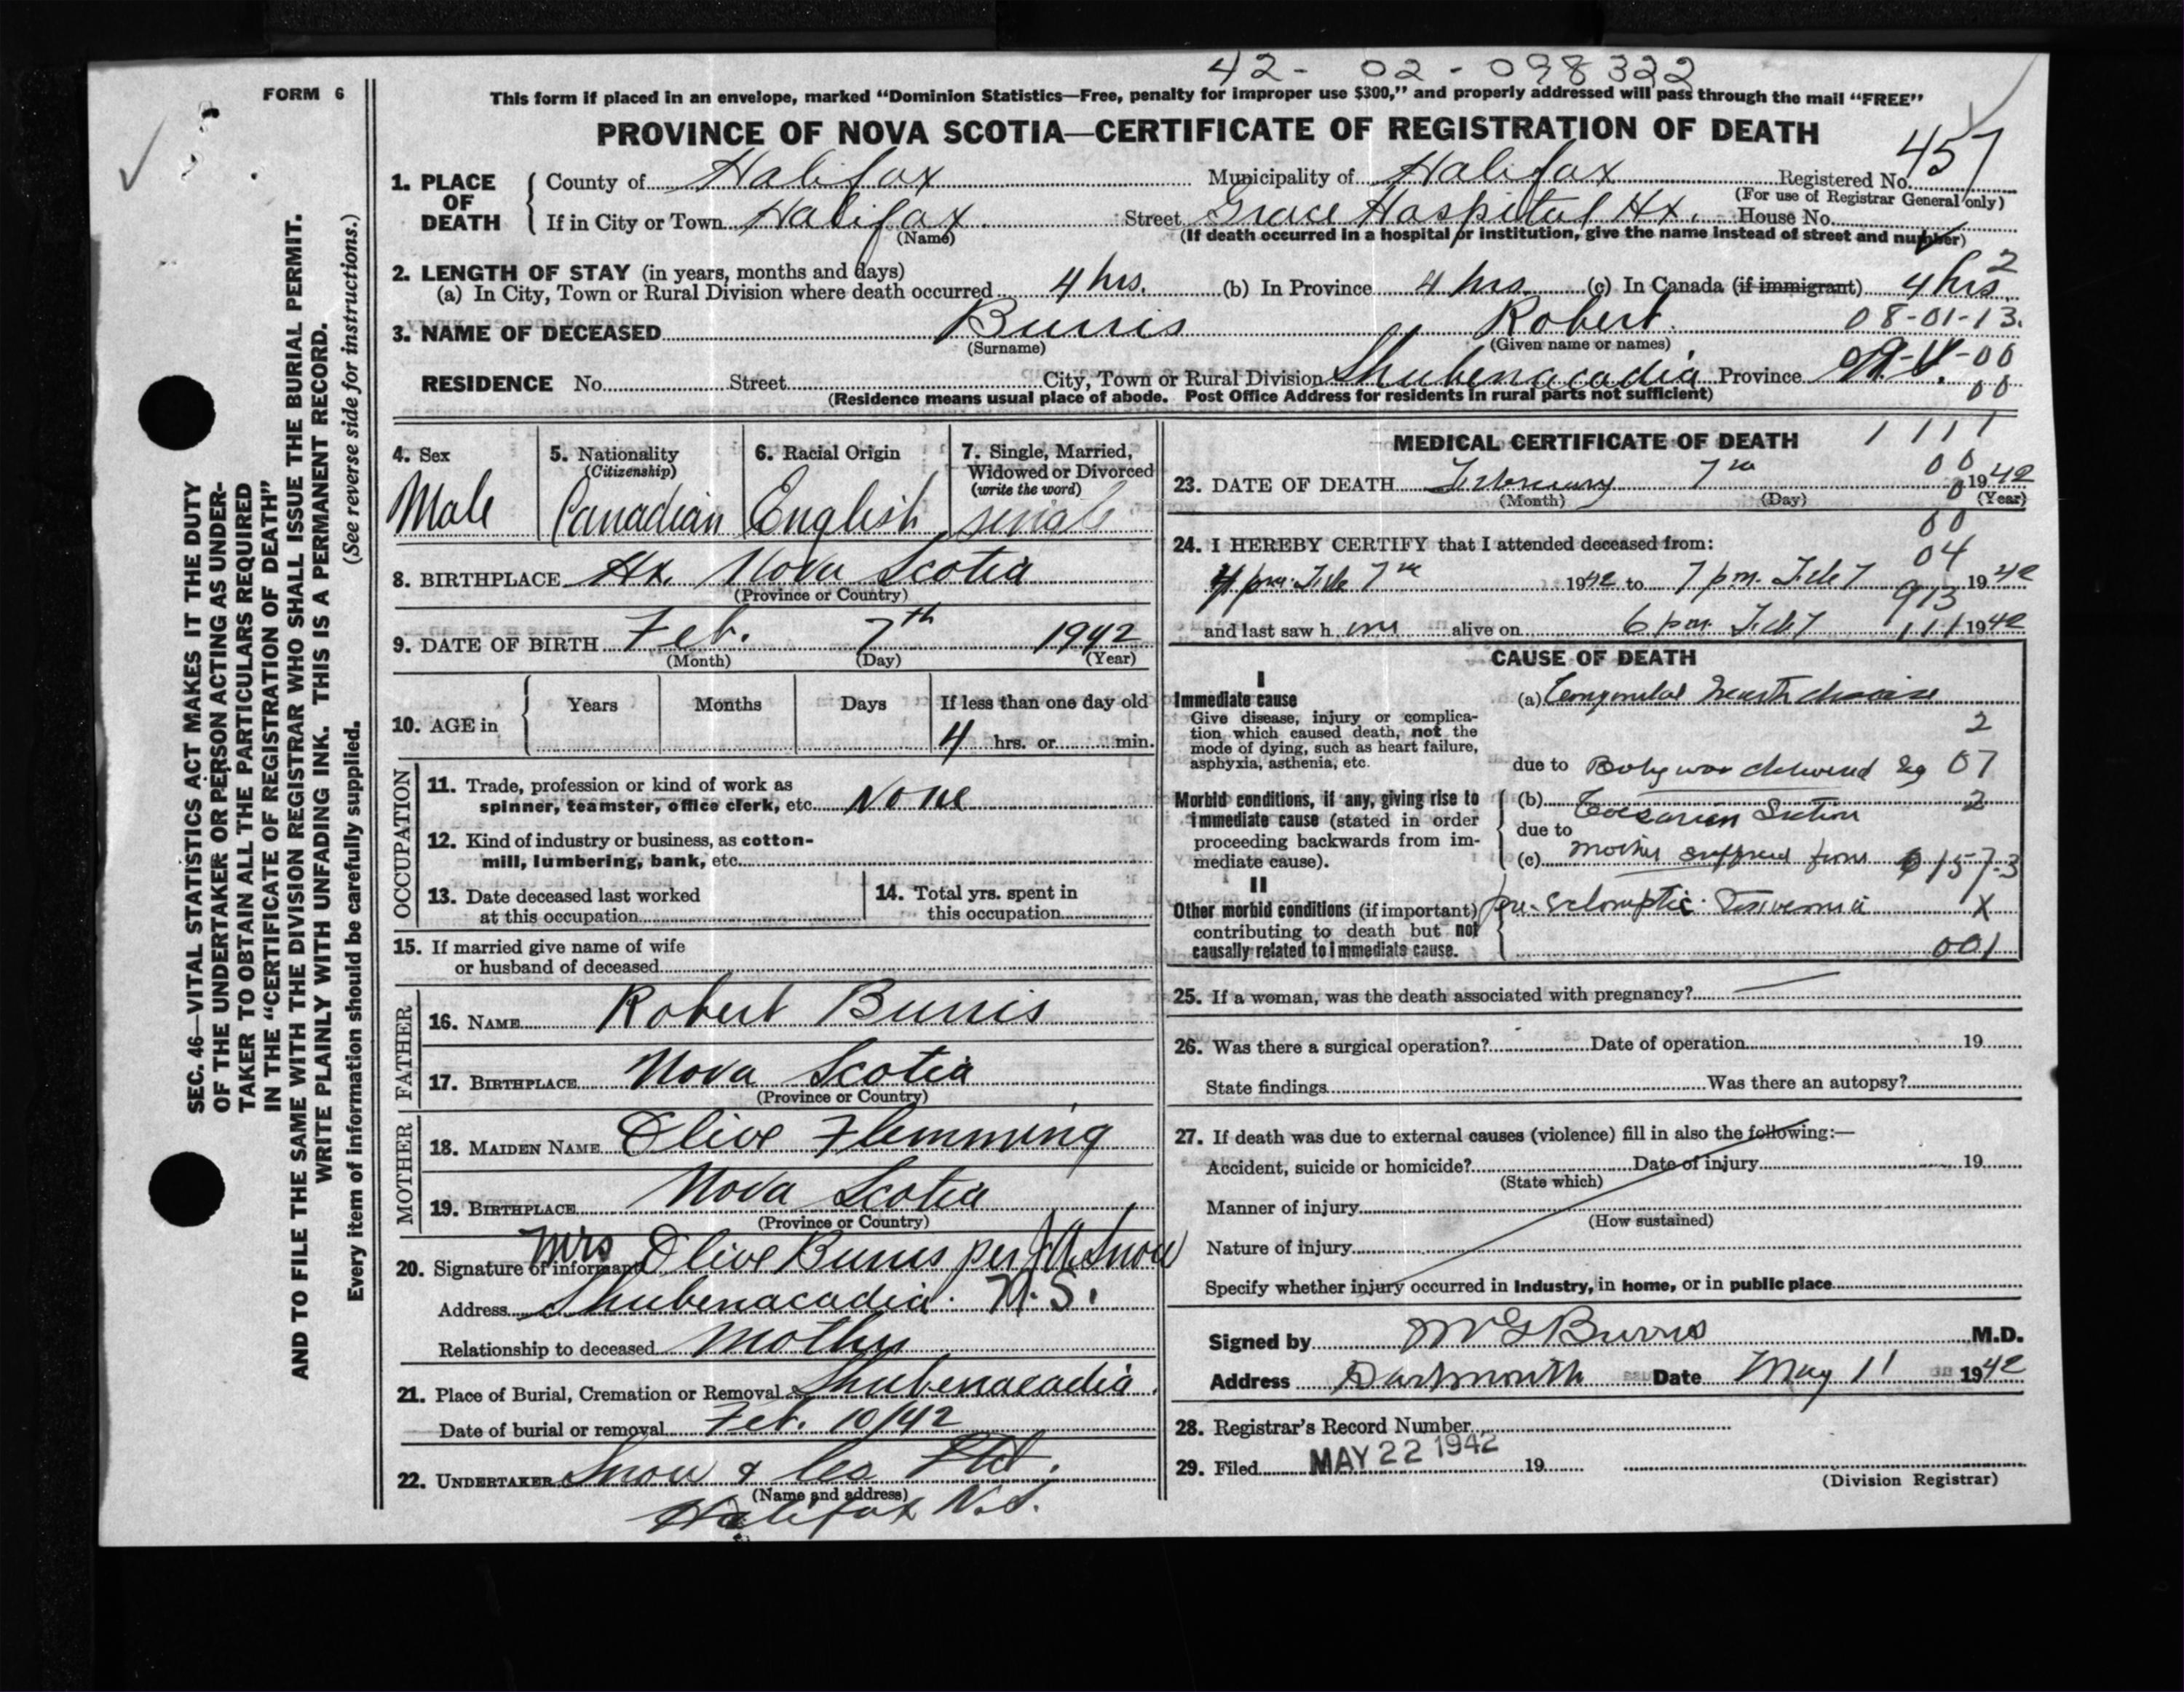 42- 02-098322
FORM 6
This form if placed in an envelope, marked “Dominion Statistics—Free, penalty for improper use $300,” and properly addressed will pass through the mail “FREE”
PROVINCE OF NOVA SCOTIA—CERTIFICATE OF REGISTRATION OF DEATH
457
1. PLACE OF DEATH
County of Halifax Municipality of Halifax Registered No.
(For use of Registrar General only)
If in City or Town Halifax Street Grace Hospital Hx. House No.
(Name) (If death occurred in a hospital or institution, give the name instead of street and number)
2. LENGTH OF STAY (in years, months and days) 2
(a) In City, Town or Rural Division where death occurred 4 hrs. (b) In Province 4 hrs. (c) In Canada (if immigrant) 4 hrs
3. NAME OF DECEASED Burris Robert. 08-01-13.
(Surname) (Given name or names)
RESIDENCE No. Street City, Town or Rural Division Shubenacadia Province N.S.
00
(Residence means usual place of abode. Post Office Address for residents in rural parts not sufficient)
SEC. 46—VITAL STATISTICS ACT MAKES IT THE DUTY
OF THE UNDERTAKER OR PERSON ACTING AS UNDER-
TAKER TO OBTAIN ALL THE PARTICULARS REQUIRED
IN THE “CERTIFICATE OF REGISTRATION OF DEATH”
AND TO FILE THE SAME WITH THE DIVISION REGISTRAR WHO SHALL ISSUE THE BURIAL PERMIT.
WRITE PLAINLY WITH UNFADING INK. THIS IS A PERMANENT RECORD.
Every item of information should be carefully supplied. (See reverse side for instructions.)
4. Sex
Male
5. Nationality
(Citizenship)
Canadian
6. Racial Origin
English
7. Single, Married,
Widowed or Divorced
(write the word)
8. BIRTHPLACE Hx. Nova Scotia
(Province or Country)
9. DATE OF BIRTH Feb. 7th 1942
(Month) (Day) (Year)
10. AGE in
Years Months Days If less than one day old
4 hrs. or min.
OCCUPATION
11. Trade, profession or kind of work as
spinner, teamster, office clerk, etc. None
12. Kind of industry or business, as cotton-
mill, lumbering, bank, etc.
13. Date deceased last worked
at this occupation
14. Total yrs. spent in
this occupation
15. If married give name of wife
or husband of deceased
FATHER
16. NAME Robert Burris
17. BIRTHPLACE Nova Scotia
(Province or Country)
MOTHER
18. MAIDEN NAME Olive Flemming
19. BIRTHPLACE Nova Scotia
(Province or Country)
20. Signature of informant Mrs Olive Burris per Snow
Address Shubenacadia. N.S.
Relationship to deceased Mother
21. Place of Burial, Cremation or Removal Shubenacadia.
Date of burial or removal Feb. 10/42
22. UNDERTAKER Snow & Co Ltd.
(Name and address)
Halifax N.S.
MEDICAL CERTIFICATE OF DEATH 1111
00
23. DATE OF DEATH February 7th 0 1942
(Month) (Day) (Year)
00
24. I HEREBY CERTIFY that I attended deceased from:
04
4 pm Feb 7th 1942 to 7 pm. Feb 7 1942
913
and last saw h im alive on 6 pm. Feb 7 111 1942
CAUSE OF DEATH
I
Immediate cause
Give disease, injury or complica-
tion which caused death, not the
mode of dying, such as heart failure,
asphyxia, asthenia, etc.
(a) Congenital heart disease
2
due to Baby was delivered by 07
Morbid conditions, if any, giving rise to
immediate cause (stated in order
proceeding backwards from im-
mediate cause).
(b) Caesarian Section 2
due to
(c) mother suffered from 157.3
II
Other morbid conditions (if important)
contributing to death but not
causally related to immediate cause.
pre-eclamptic Toxaemia X
001
25. If a woman, was the death associated with pregnancy? —
26. Was there a surgical operation? Date of operation 19
State findings Was there an autopsy?
27. If death was due to external causes (violence) fill in also the following:—
Accident, suicide or homicide? Date of injury 19
(State which)
Manner of injury
(How sustained)
Nature of injury
Specify whether injury occurred in Industry, in home, or in public place
Signed by Burris M.D.
Address Dartmouth Date May 11 1942
28. Registrar's Record Number
29. Filed MAY 22 1942 19
(Division Registrar)